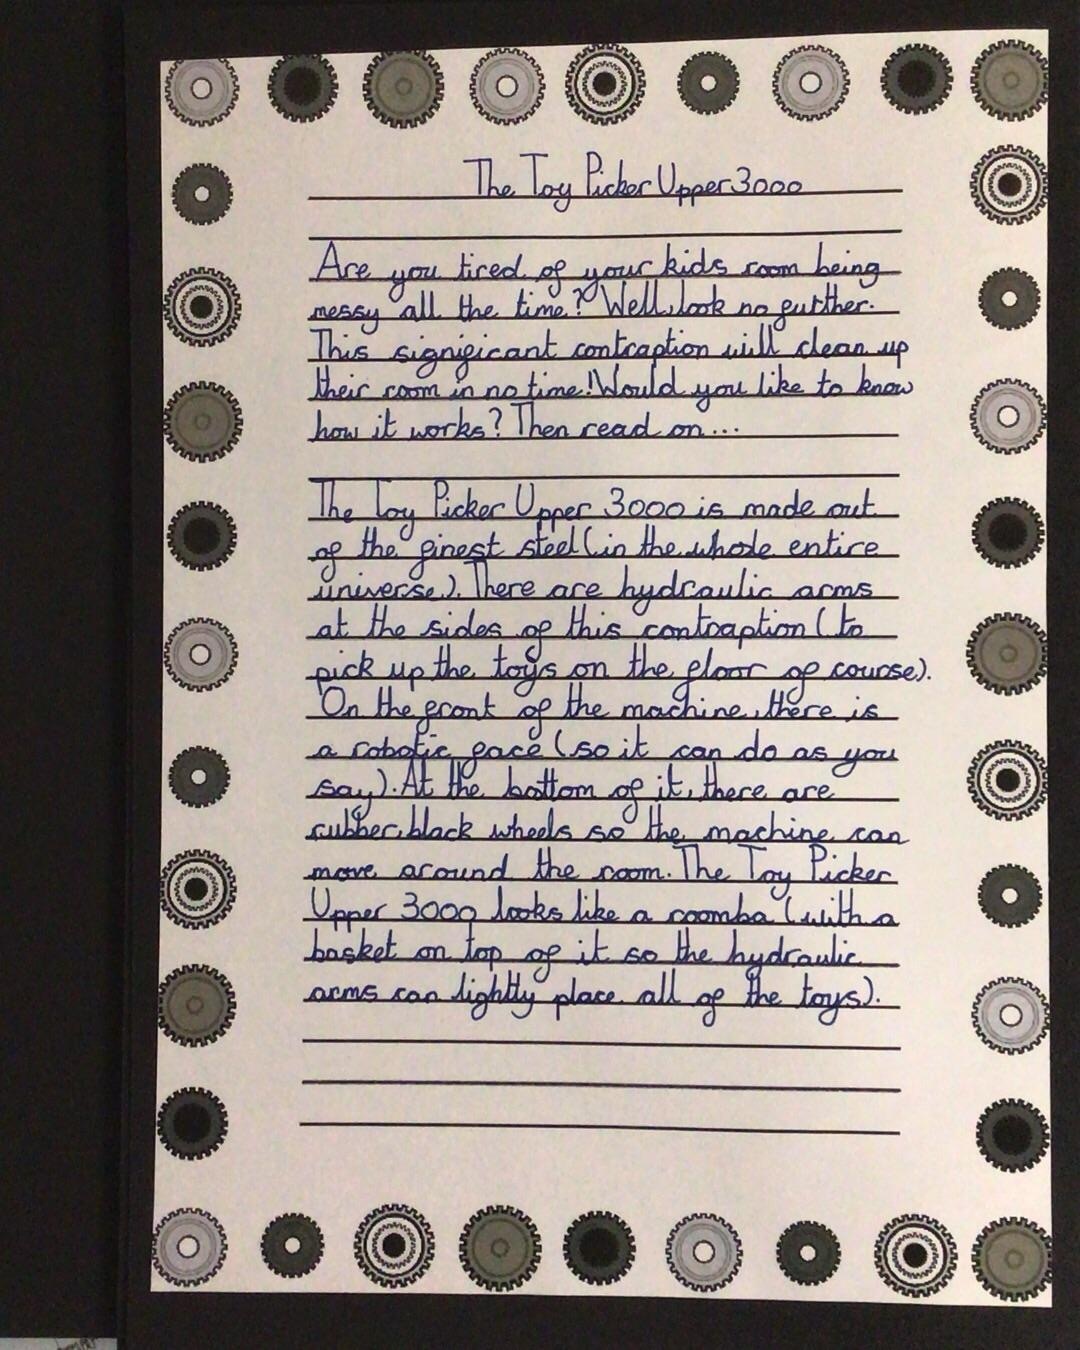 The Toy Picker Upper 3000
Are you tired of your kids room being
messy all the time? Well, look no further.
This significant contraption will clean up
their room in no time! Would you like to know
how it works? Then read on...
The Toy Picker Upper 3000 is made out
of the finest steel (in the whole entire
universe). There are hydraulic arms
at the sides of this contraption (to
pick up the toys on the floor of course).
On the front of the machine, there is
a robotic face (so it can do as you
say). At the bottom of it, there are
rubber, black wheels so the machine can
move around the room. The Toy Picker
Upper 3000 looks like a roomba (with a
basket on top of it so the hydraulic
arms can lightly place all of the toys).